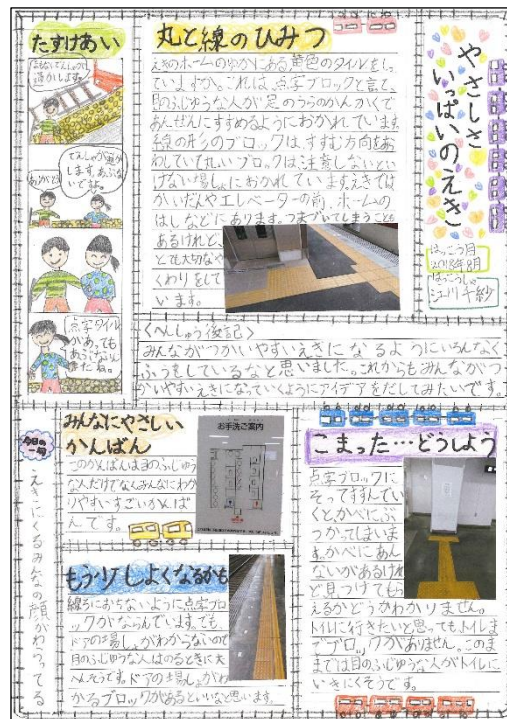 やさしさ
いっぱいのえき
はっこう月
2018年8月
はっこうしゃ
江川千紗
丸と線のひみつ
えきのホームのゆかにある黄色のタイルをし
ていますか。これは、点字ブロックと言て、
目のふじゆうな人が足のうらのかんかくで
あんぜんにすすめるようにおかれています。
線の形のブロックは、すすむ方向をあ
わしていて丸いブロックは注意しないとい
けない場しょにおかれています。えきでは
かいだんやエレベーターの前、ホームの
はしなどにあります。つまづいてしまうことも
あるけれど、
とても大切なや
くわりをして
います。
たすけあい
ありがとう
点字タイル
があっても
あぶないん
きたね。
〈へんしゅう後記〉
みんながつかいやすいえきになるようにいろんなく
ふうをしているなと思いました。これからもみんながつ
かいやすいえきになっていくようにアイデアをだしてみたいです。
今日の一句
えきにくるみんなの顔がわらってる
みんなにやさしい
かんばん
このかんばんは目のふじゆう
な人だけでなくみんなにわか
りやすいすごいかんば
んです。
お手洗ご案内
もう少しよくなるかも
線ろにおちないように点字ブロ
ックがならんでいます。でも、
ドアの場しょがわからないので
目のふじゆうな人はのるときに大
へんそうです。ドアの場しょがわ
かるブロックがあるといいなと思います。
こまった…どうしよう
点字ブロックに
そってすすんでい
くと、かべにぶ
つかってしまいま
す。かべにあん
ないがあるけれ
ど見つけてもら
えるかどうかわかりません。
トイレに行きたいと思っても、トイレま
でブロックがありません。このま
までは目のふじゆうな人がトイレに
いきにくそうです。